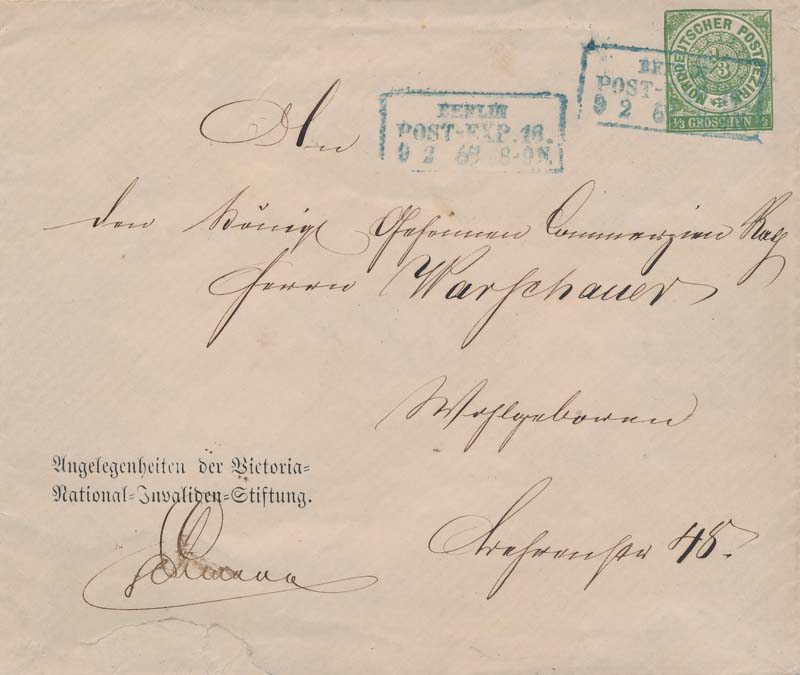 NORDDEUTSCHER POSTBEZIRK
1/3
1/3 GROSCHEN 1/3
BERLIN
POST-EXP. 18.
9 2 68 8-9N.
BE
POST-
9 2 6
An
den Königl Geheimen Commerzien Rath
Herrn Warschauer
Wohlgeboren
Behrenstr 48.
Angelegenheiten der Victoria-
National-Invaliden-Stiftung.